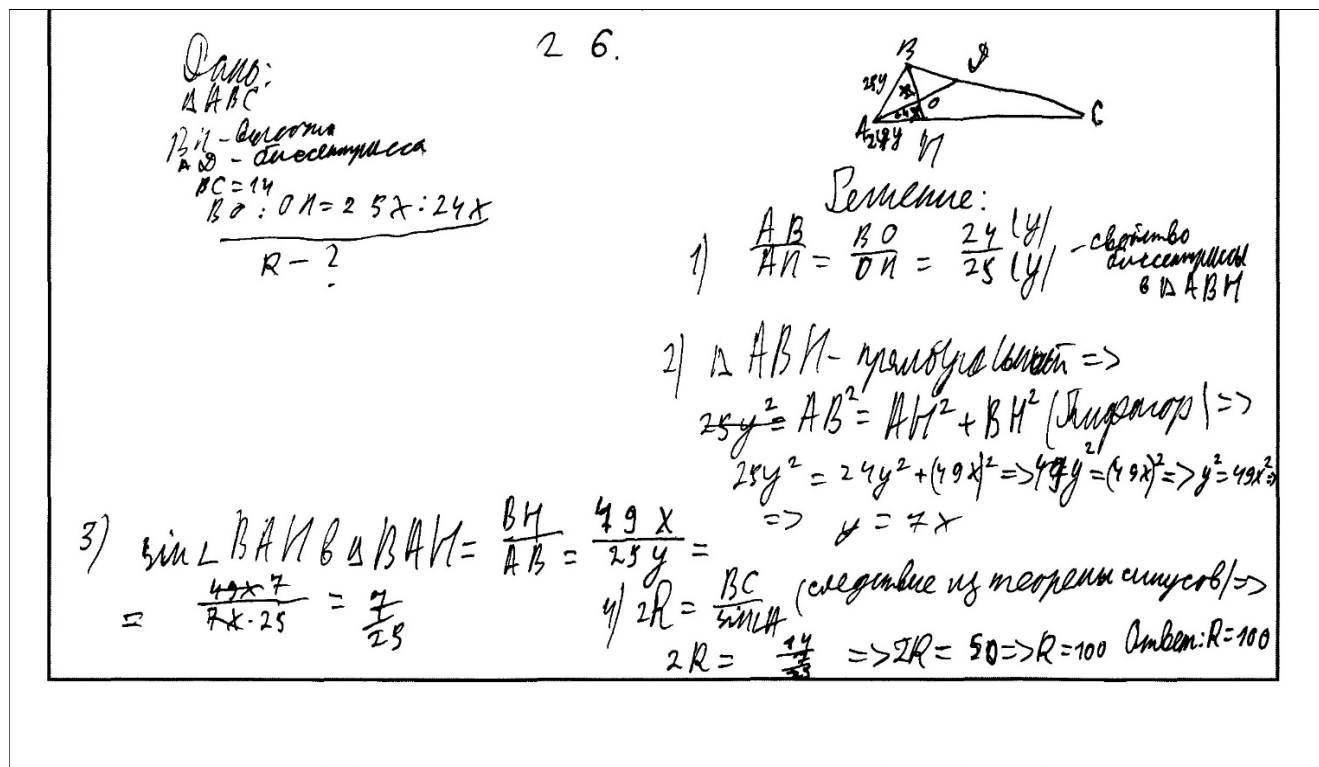 26.
Дано:
△ABC
BH - высота
AD - биссектрисса
BC = 14
BO : OH = 25x : 24x
R - ?
B D
25y
O
A 24y H C
Решение:
1) AB/AH = BO/OH = 24(y)/25(y) - свойство биссектрисы в △ABH
2) △ABH - прямоугольный =>
25y² = AB² = AH² + BH² (Пифагор) =>
25y² = 24y² + (49x)² => 49y² = (49x)² => y² = 49x² =>
=> y = 7x
3) sin∠BAH в △BAH = BH/AB = 49x/25y =
= 49x 7/7x·25 = 7/25
4) 2R = BC/sin∠A (следствие из теоремы синусов) =>
2R = 14/(7/25) => 2R = 50 => R = 100 Ответ: R = 100